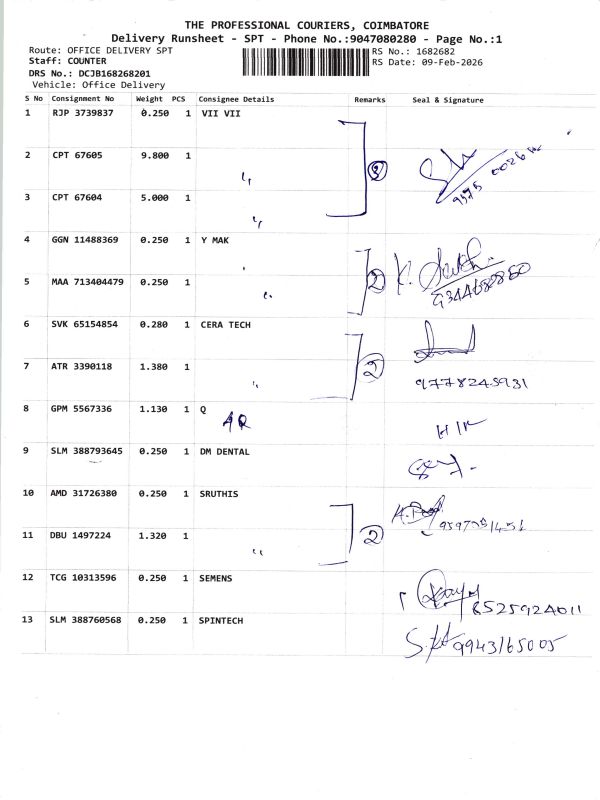 THE PROFESSIONAL COURIERS, COIMBATORE
Delivery Runsheet - SPT - Phone No.:9047080280 - Page No.:1
Route: OFFICE DELIVERY SPT RS No.: 1682682
Staff: COUNTER RS Date: 09-Feb-2026
DRS No.: DCJB168268201
Vehicle: Office Delivery
S No Consignment No Weight PCS Consignee Details Remarks Seal & Signature
1 RJP 3739837 0.250 1 VII VII
2 CPT 67605 9.800 1 " 3
3 CPT 67604 5.000 1 "
4 GGN 11488369 0.250 1 Y MAK
5 MAA 713404479 0.250 1 " 2
6 SVK 65154854 0.280 1 CERA TECH
7 ATR 3390118 1.380 1 " 2 9778245931
8 GPM 5567336 1.130 1 Q AR
9 SLM 388793645 0.250 1 DM DENTAL
10 AMD 31726380 0.250 1 SRUTHIS
11 DBU 1497224 1.320 1 " 2
12 TCG 10313596 0.250 1 SEMENS 8525924011
13 SLM 388760568 0.250 1 SPINTECH 9943165005